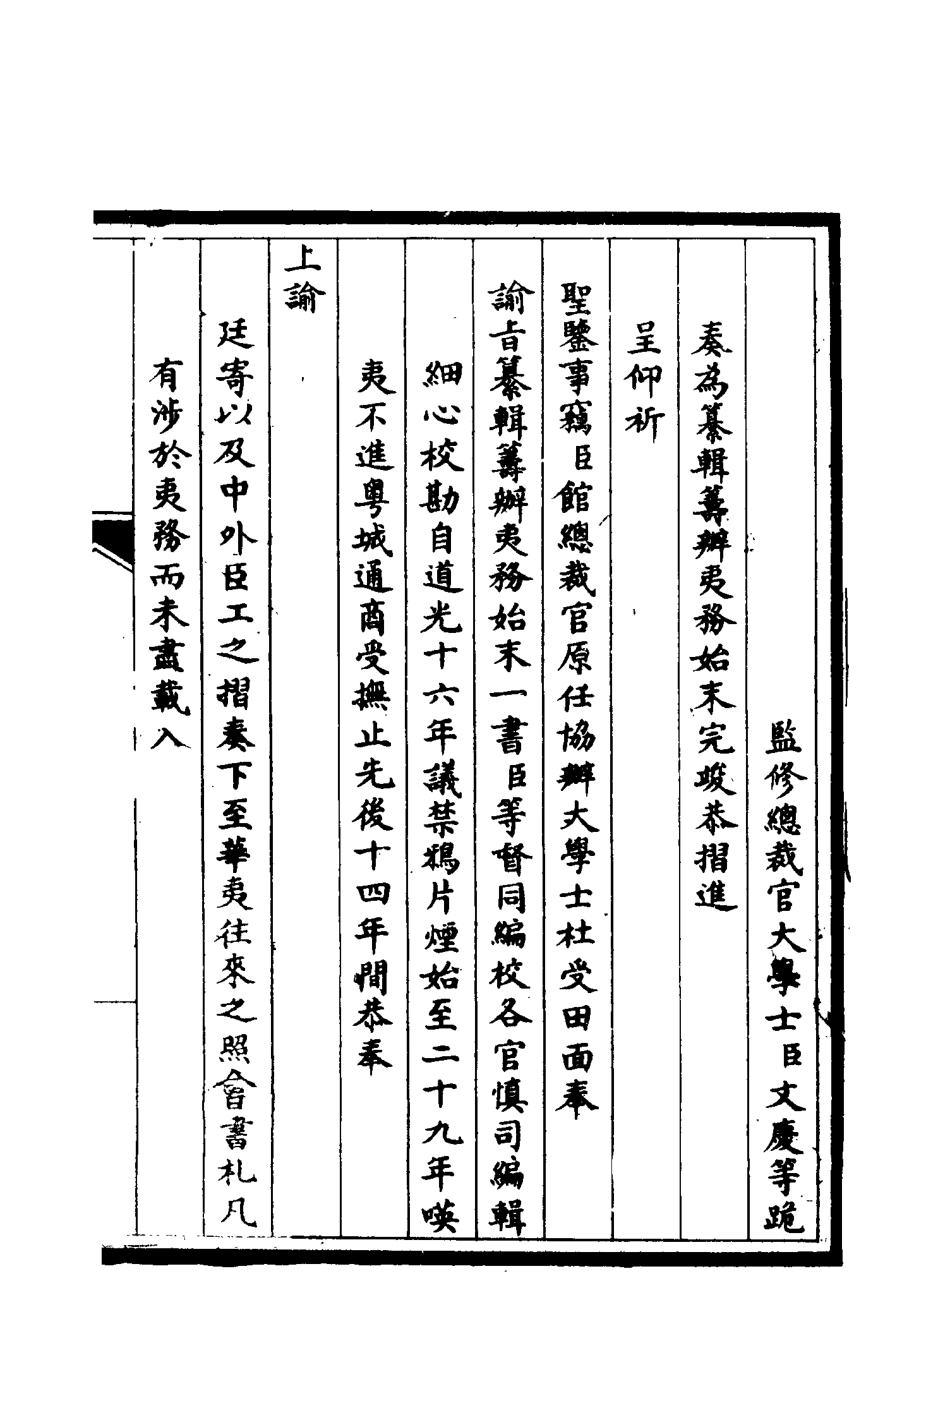 監修總裁官大學士臣文慶等跪
奏為纂輯籌辦夷務始末完竣恭摺進
呈仰祈
聖鑒事竊臣館總裁官原任協辦大學士杜受田面奉
諭旨纂輯籌辦夷務始末一書臣等督同編校各官慎司編輯
細心校勘自道光十六年議禁鴉片煙始至二十九年㗸
夷不進粵城通商受撫止先後十四年間恭奉
上諭
廷寄以及中外臣工之摺奏下至華夷往來之照會書札凡
有涉於夷務而未盡載入